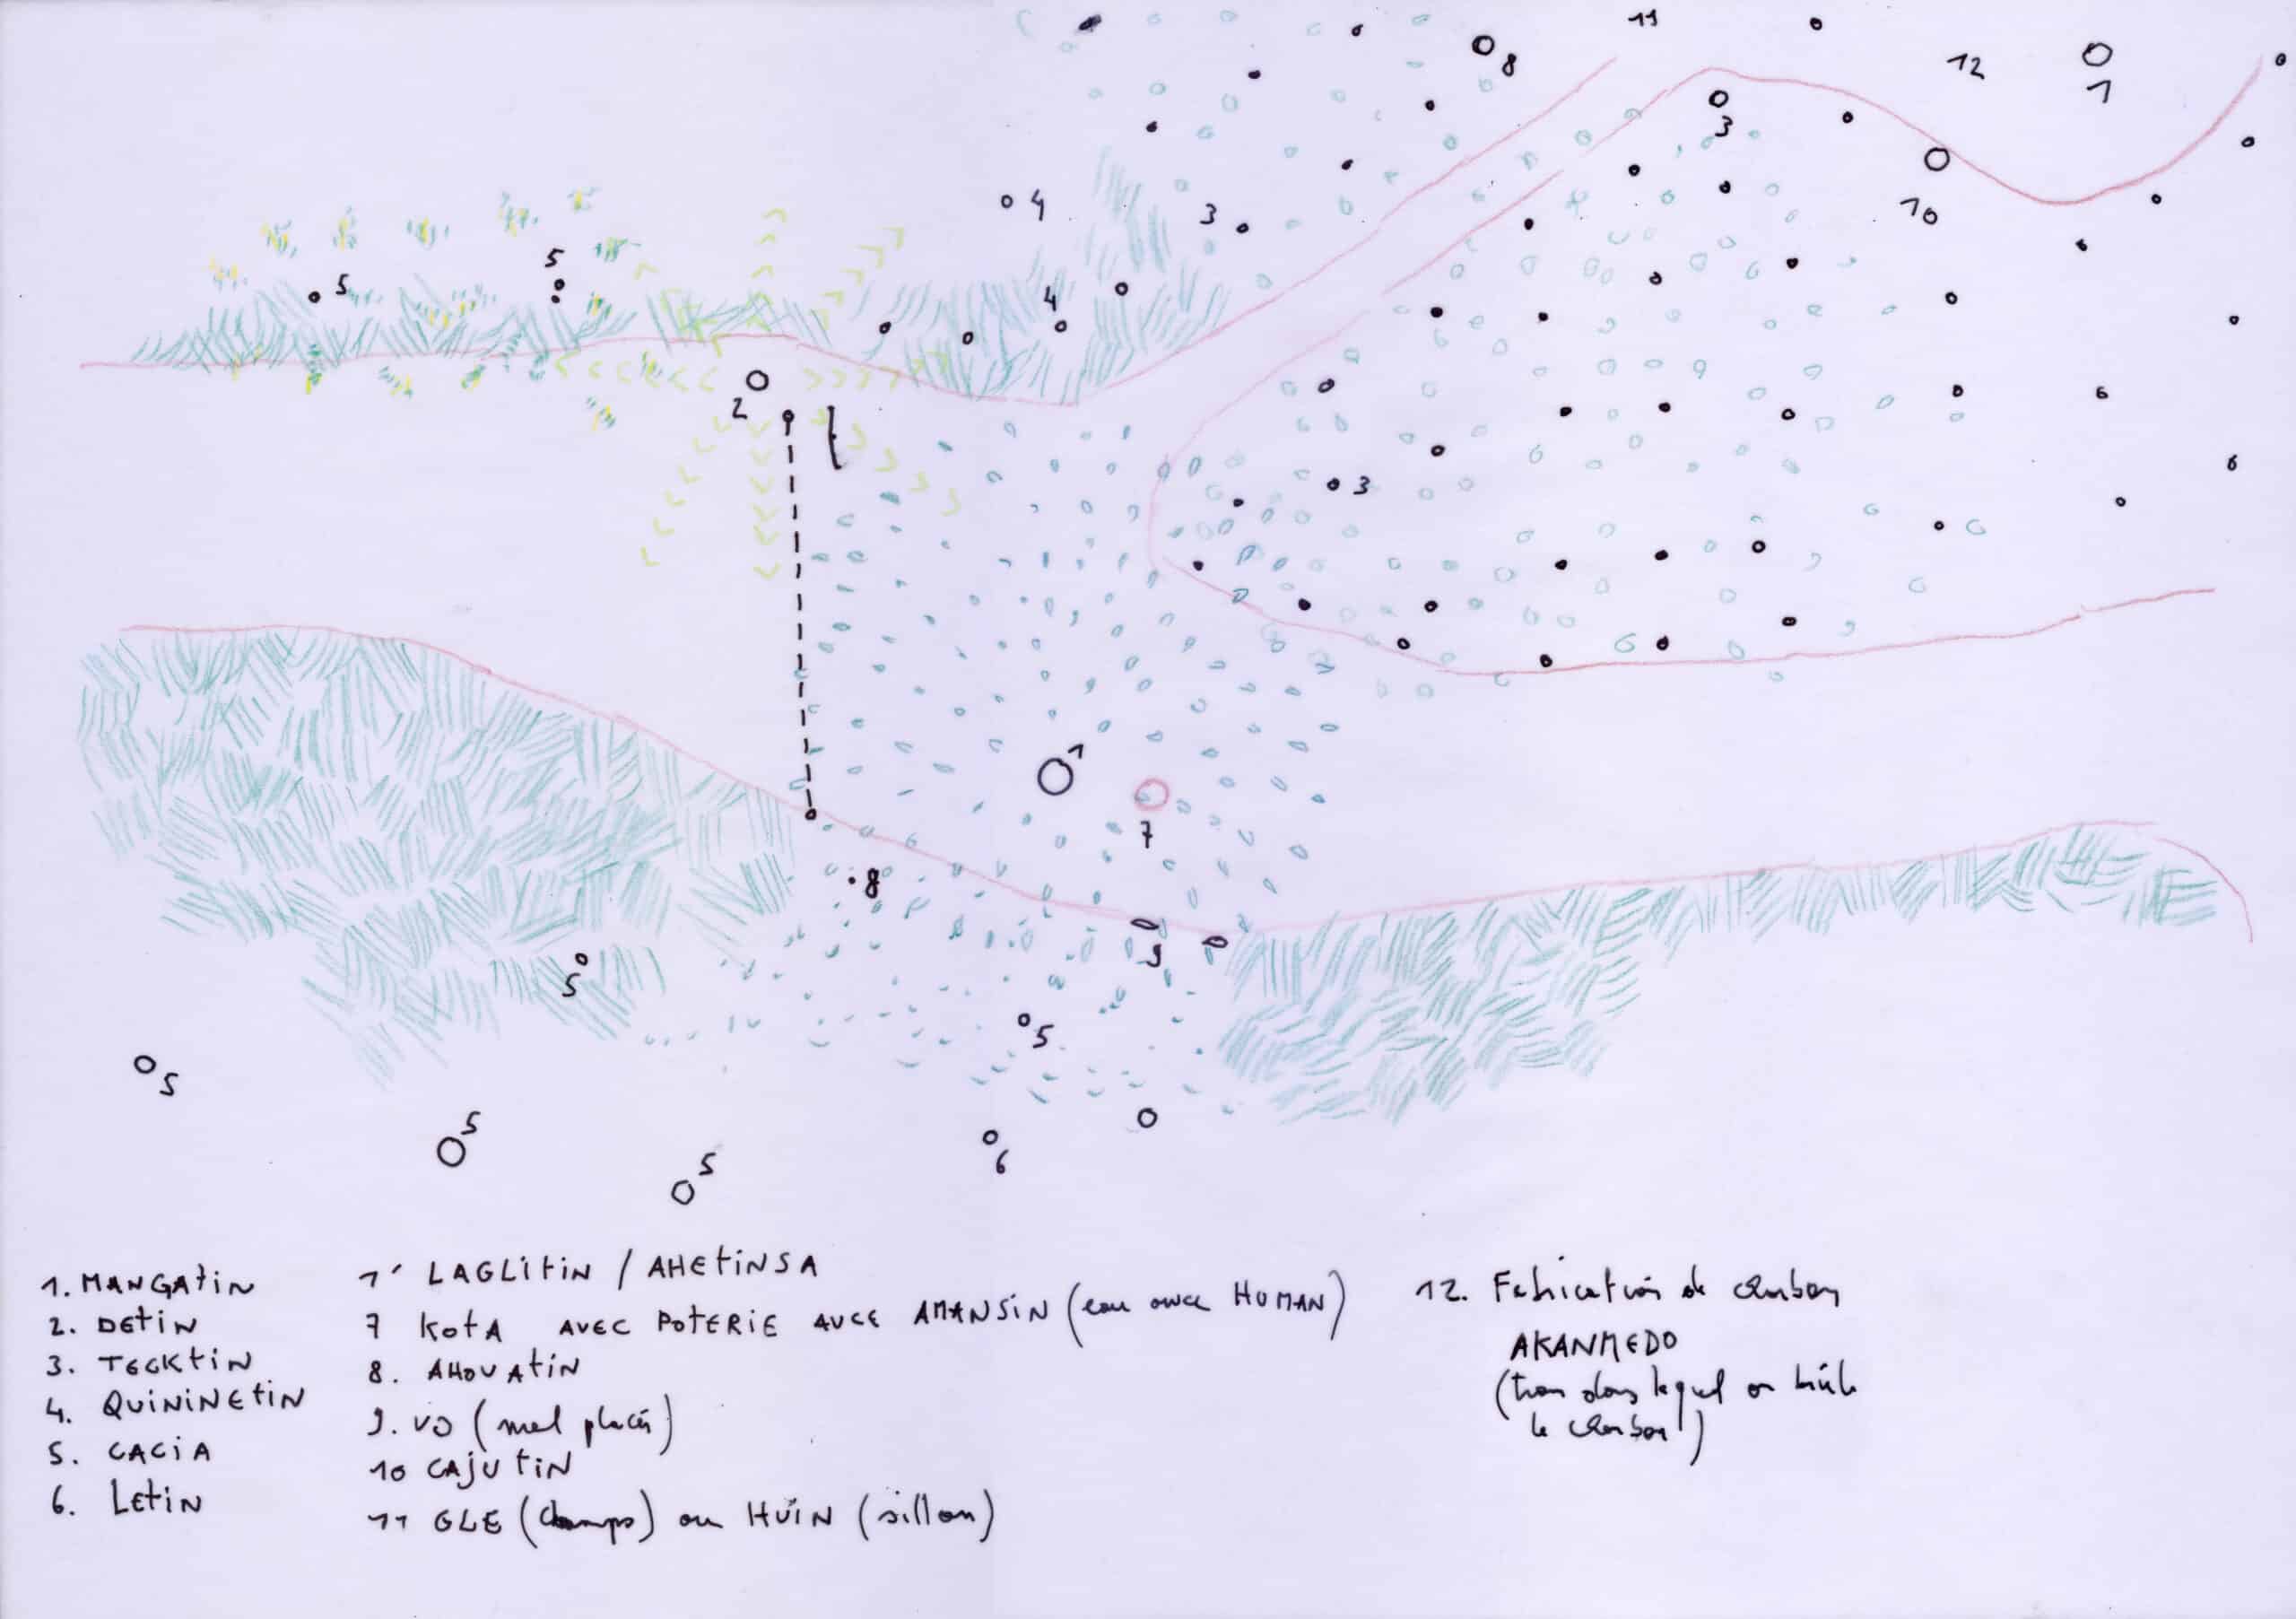 11
8
12
1
3
10
4
3
5
5
4
2
3
1
7
8
9
5
5
5
5
6
5
1. MANGATIN
2. DETIN
3. TECKTIN
4. QUININETIN
5. CACIA
6. LETIN
1' LAGLITIN / AHETINSA
7 KOTA AVEC POTERIE AVCE AMANSIN (eau avec HUMAN)
8. AHOUATIN
9. VO (mal placés)
10 CAJUTIN
11 GLE (champs) ou HUIN (sillon)
12. Fabrication de charbon
AKANMEDO
(trou dans lequel on brûle
le charbon)